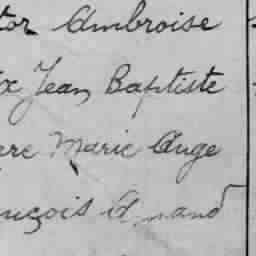 tor Ambroise
x Jean Baptiste
re Marie Ange
nçois Armand